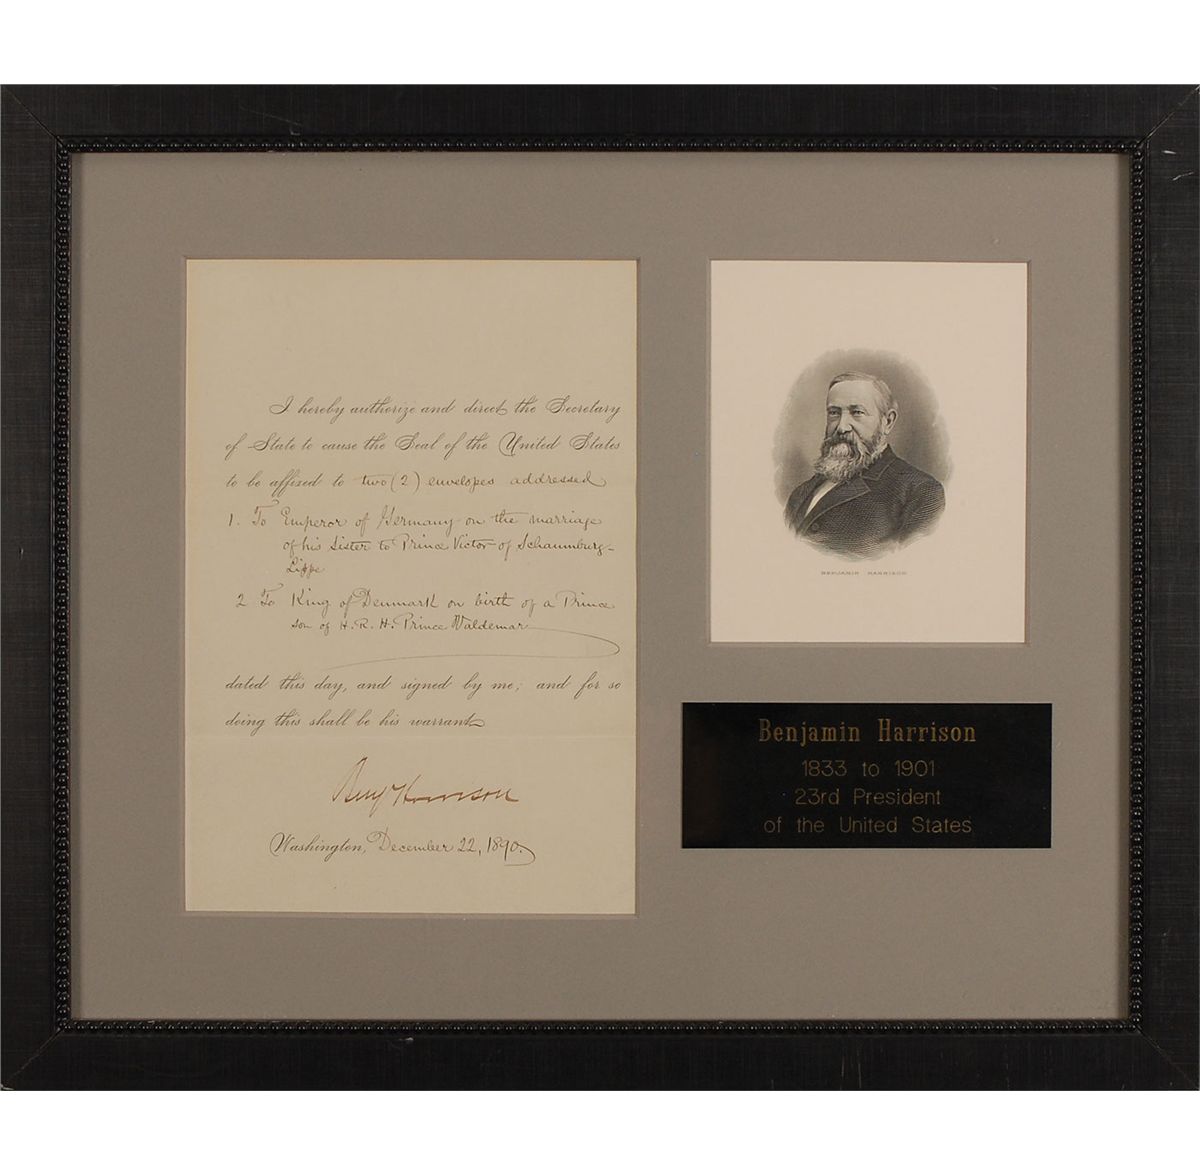 I hereby authorize and direct the Secretary
of State to cause the Seal of the United States
to be affixed to two (2) envelopes addressed
1. To Emperor of Germany on the marriage
of his Sister to Prince Victor of Schaumburg-
Lippe
2 To King of Denmark on birth of a Prince
son of H.R.H. Prince Valdemar
dated this day, and signed by me; and for so
doing this shall be his warrant.
Benj Harrison
Washington, December 22, 1890.
BENJAMIN HARRISON
Benjamin Harrison
1833 to 1901
23rd President
of the United States